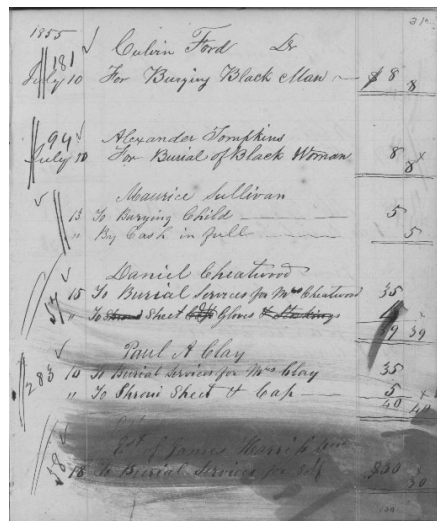 1855
181
Calvin Ford Dr
July 10 For Burying Black Man $ 8
8
94
Alexander Tompkins
July 10 For Burial of Black Woman 8
8
Maurice Sullivan
13 To Burying Child 5
" By Cash in full 5
Daniel Cheatwood
57
15 To Burial Services for Mrs Cheatwood 35
" To Shroud Sheet Gloves & Stockings
39
Paul A Clay
283
10 To Burial Services for Mrs Clay 35
" To Shroud Sheet & Cap 5
40 40
Est of James Harris
58
18 To Burial Services for Self $30
30